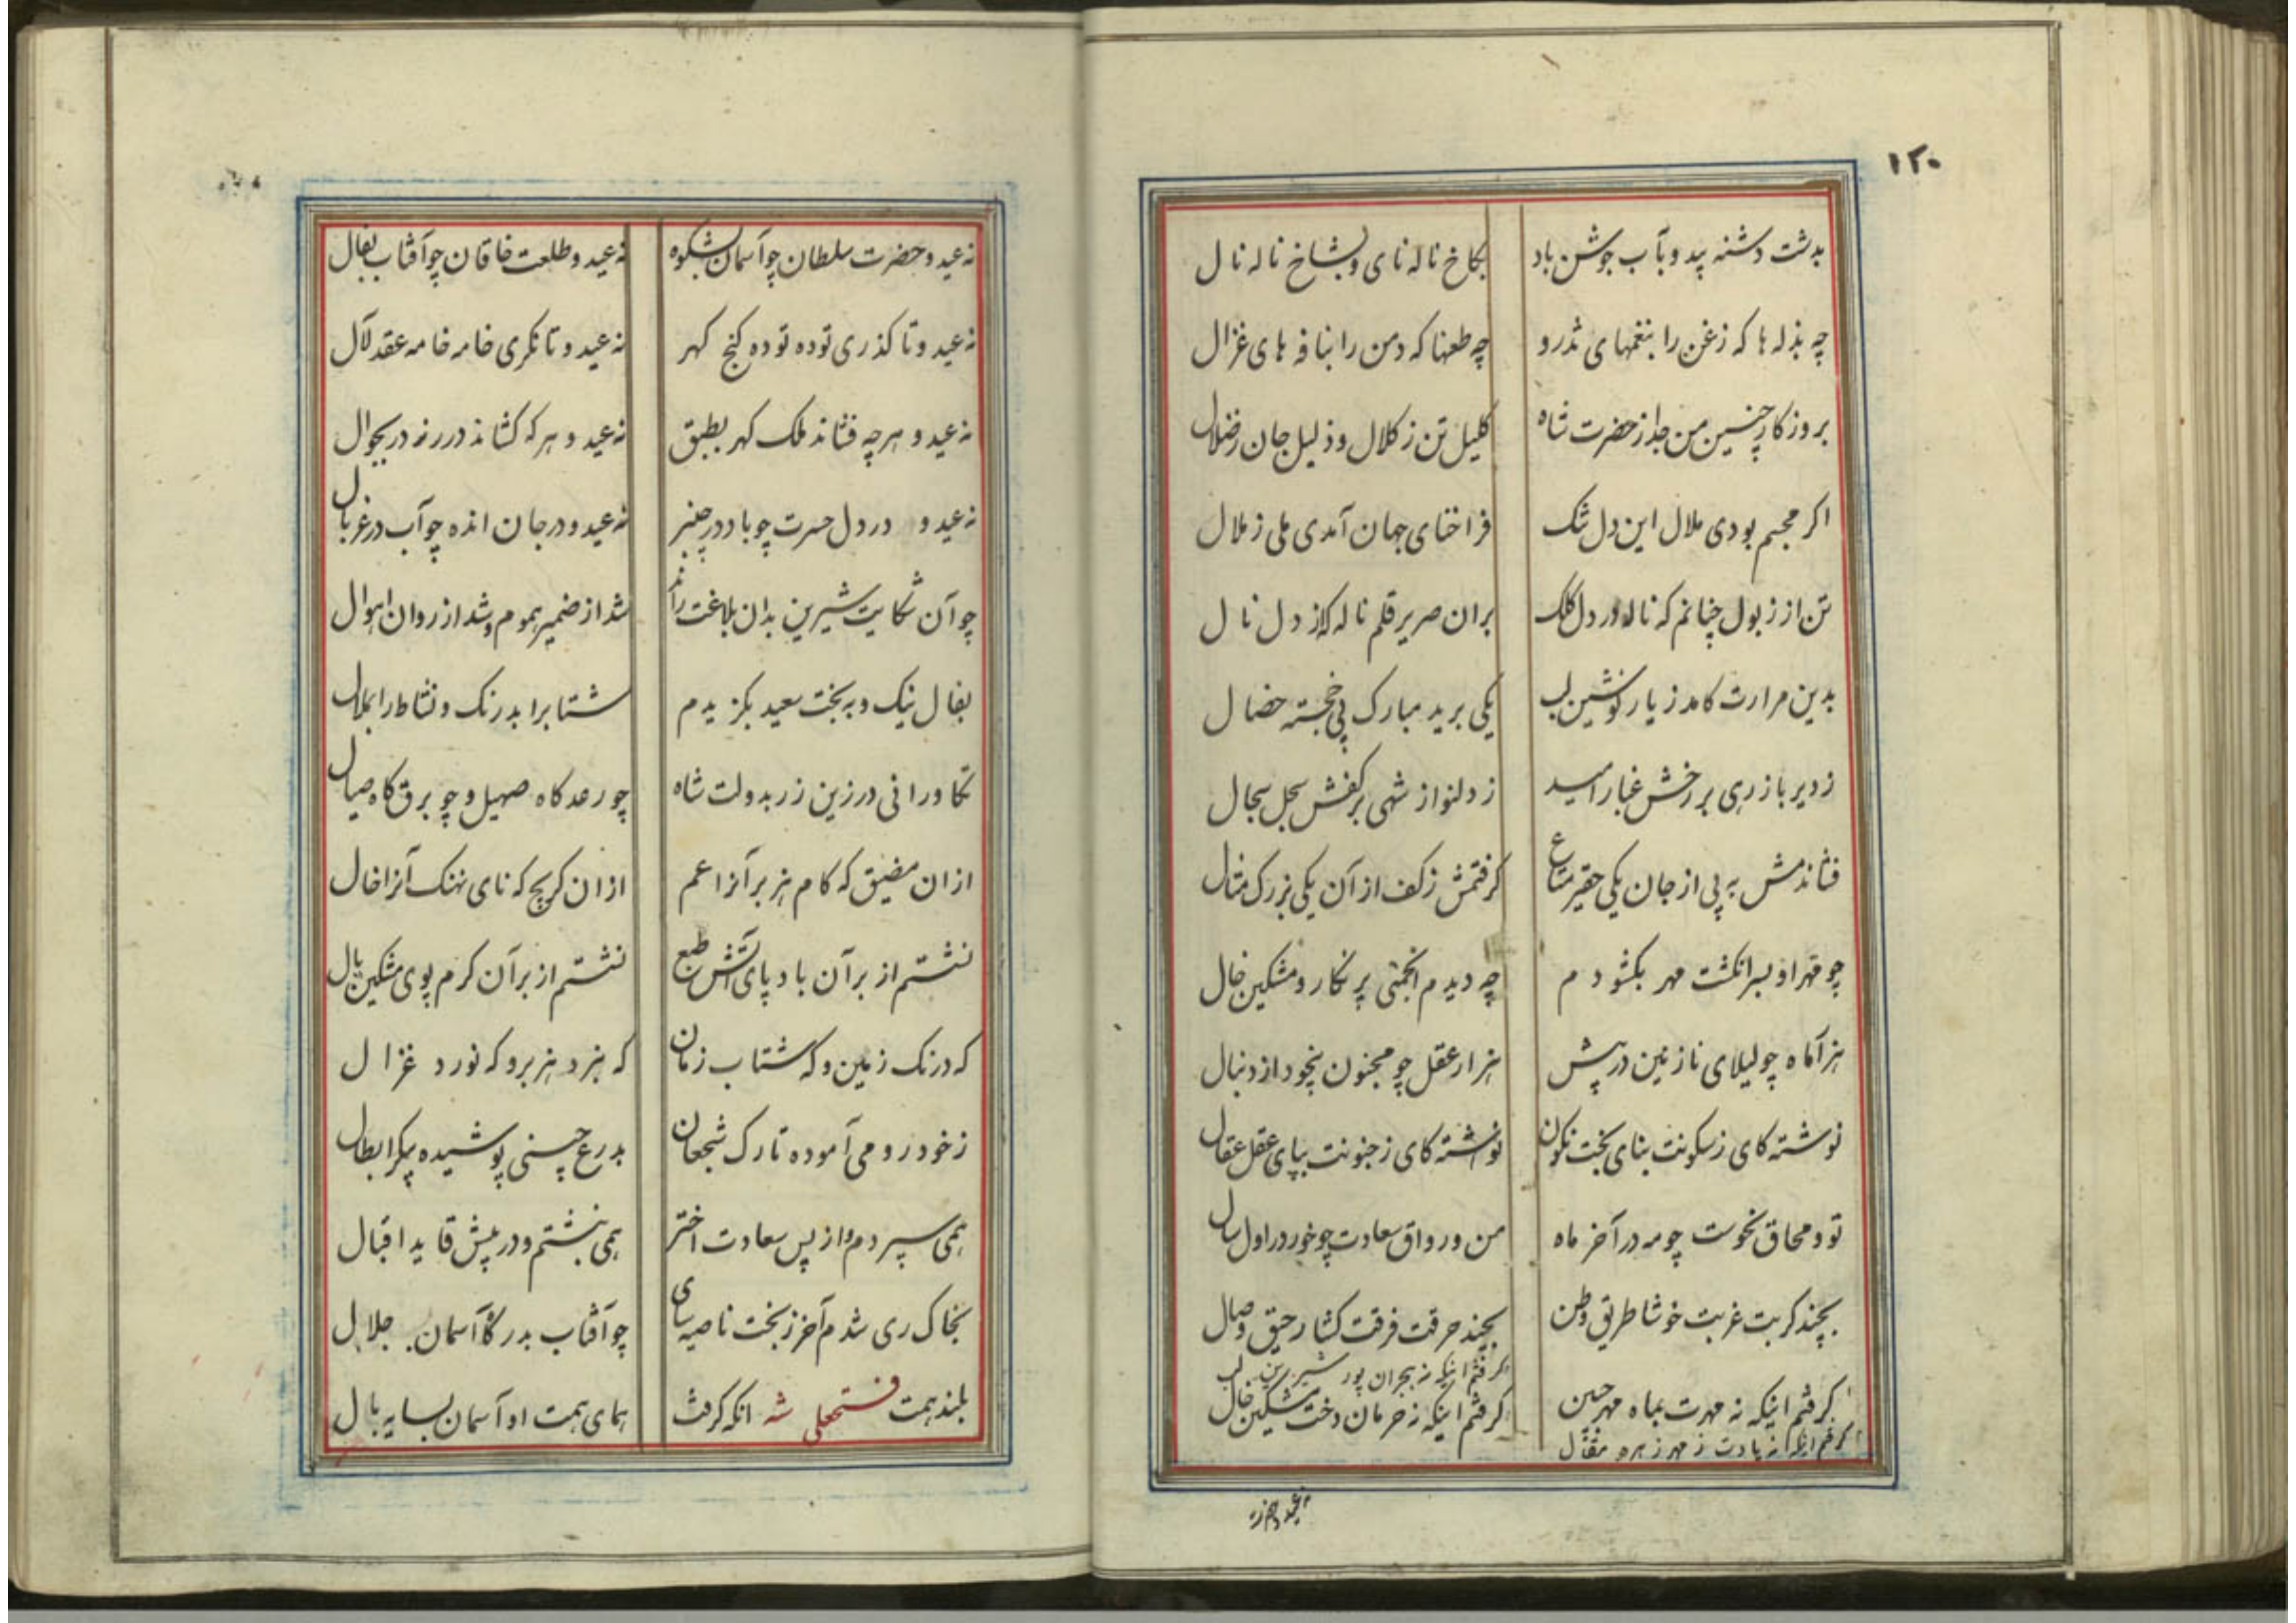 ۱۲۰
بدشت دشنه پید و بآب جوشن باد بکاخ ناله نای و بشاخ ناله نال
چه بذله ها که زغن را بنغمهای تذرو چه طعنها که دمن را بنافه های غزال
بروزکار چنین من جدا ز حضرت شاه کلیل تن ز کلال و ذلیل جان ز ضلال
اکر مجسم بودی ملال این دل تنک فراخنای جهان آمدی ملی ز ملال
تن از زبول چنانم که ناله در دل کلک بران صریر قلم ناله کز دل نال
بدین مرارت کامد ز یار نوشین لب یکی برید مبارک پی خجسته خصال
ز دیر باز رهی بر رخش غبار امید ز دلنواز شهی بر کفش سجل سجال
فشاندمش به پی از جان یکی حقیر متاع کرفتمش ز کف از آن یکی بزرک مثال
چو قهر او بسرانکشت مهر بکشودم چه دیدم انجمنی پر نکار و مشکین خال
هزار ماه چو لیلای نازنین در پیش هزار عقل چو مجنون بیخود از دنبال
نوشته کای ز سکونت بنای بخت نکون نوشته کای ز جنونت بپای عقل عقال
تو و محاق نحوست چو مه در آخر ماه من و رواق سعادت چو خور در اول سال
بچند کربت غربت خوشا طریق وطن بچند حرقت فرقت کشا رحیق وصال
کرفتم اینکه نه هجران پور شیرین لب
کرفتم اینکه نه مهرت بماه مهر جبین کرفتم اینکه نه حرمان دخت مشکین خال
کرفتم اینکه نه یادت ز مهر زهره مثال
نه عید و هر نه
نه عید و حضرت سلطان چو آسمان بشکوه نه عید و طلعت خاقان چو آفتاب بفال
نه عید و تا کذری توده توده کنج کهر نه عید و تا نکری خامه خامه عقد لآل
نه عید و هر چه فشاند ملک کهر بطبق نه عید و هر که کشاند درر نه در بجوال
نه عید و در دل حسرت چو باد در چنبر نه عید و در جان انده چو آب در غربال
چو آن شکایت شیرین بدان بلاغت راند شد از ضمیر هموم و شد از روان اهوال
بفال نیک و به بخت سعید بکزیدم شتاب را بدرنک و نشاط را بملال
تکاورانی در زین زر بدولت شاه چو رعد کاه صهیل و چو برق کاه صیال
ازان مضیق که کام هزبر آنرا عم ازان کریچ که نای نهنک آنرا خال
نشستم از بر آن باد پای آتش طبع نشستم از بر آن کرم پوی مشکین یال
که درنک زمین و که شتاب زمان که نبرد هزبر و که نورد غزال
ز خود رومی آموده تارک شجعان بدرع چینی پوشیده پیکر ابطال
همی سپردم و از پس سعادت اختر همی نبشتم و در پیش قاید اقبال
بخاک ری شدم آخر ز بخت ناصیه سای چو آفتاب بدرکاه آسمان جلال
بلند همت فتحعلی شه انکه کرفت همای همت او آسمان بسایه بال